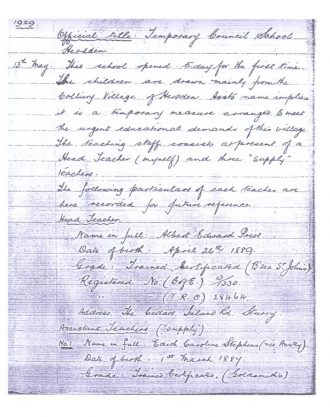 1929
Official title Temporary Council School
Hersden
13th May. This school opened today for the first time.
The children are drawn mainly from the
Colliery Village of Hersden. As its name implies
it is a temporary measure arranged to meet
the urgent educational demands of this village
The teaching staff consists at present of a
Head Teacher (myself) and three "supply"
teachers.
The following particulars of each teacher are
here recorded for future reference
Head Teacher.
Name in full: Albert Edward
Date of birth: April 26th 1889
Grade: Trained Certificated (
Registered No (B of E)
(T R C) 28464
Address The Cedars, Island Rd Sturry
Assistant Teachers ("supply")
No. 1 Name in full: Edith Caroline Stephens (née
Date of birth: 1st March 1887
Grade: Trained Certificate. (Goldsmiths)